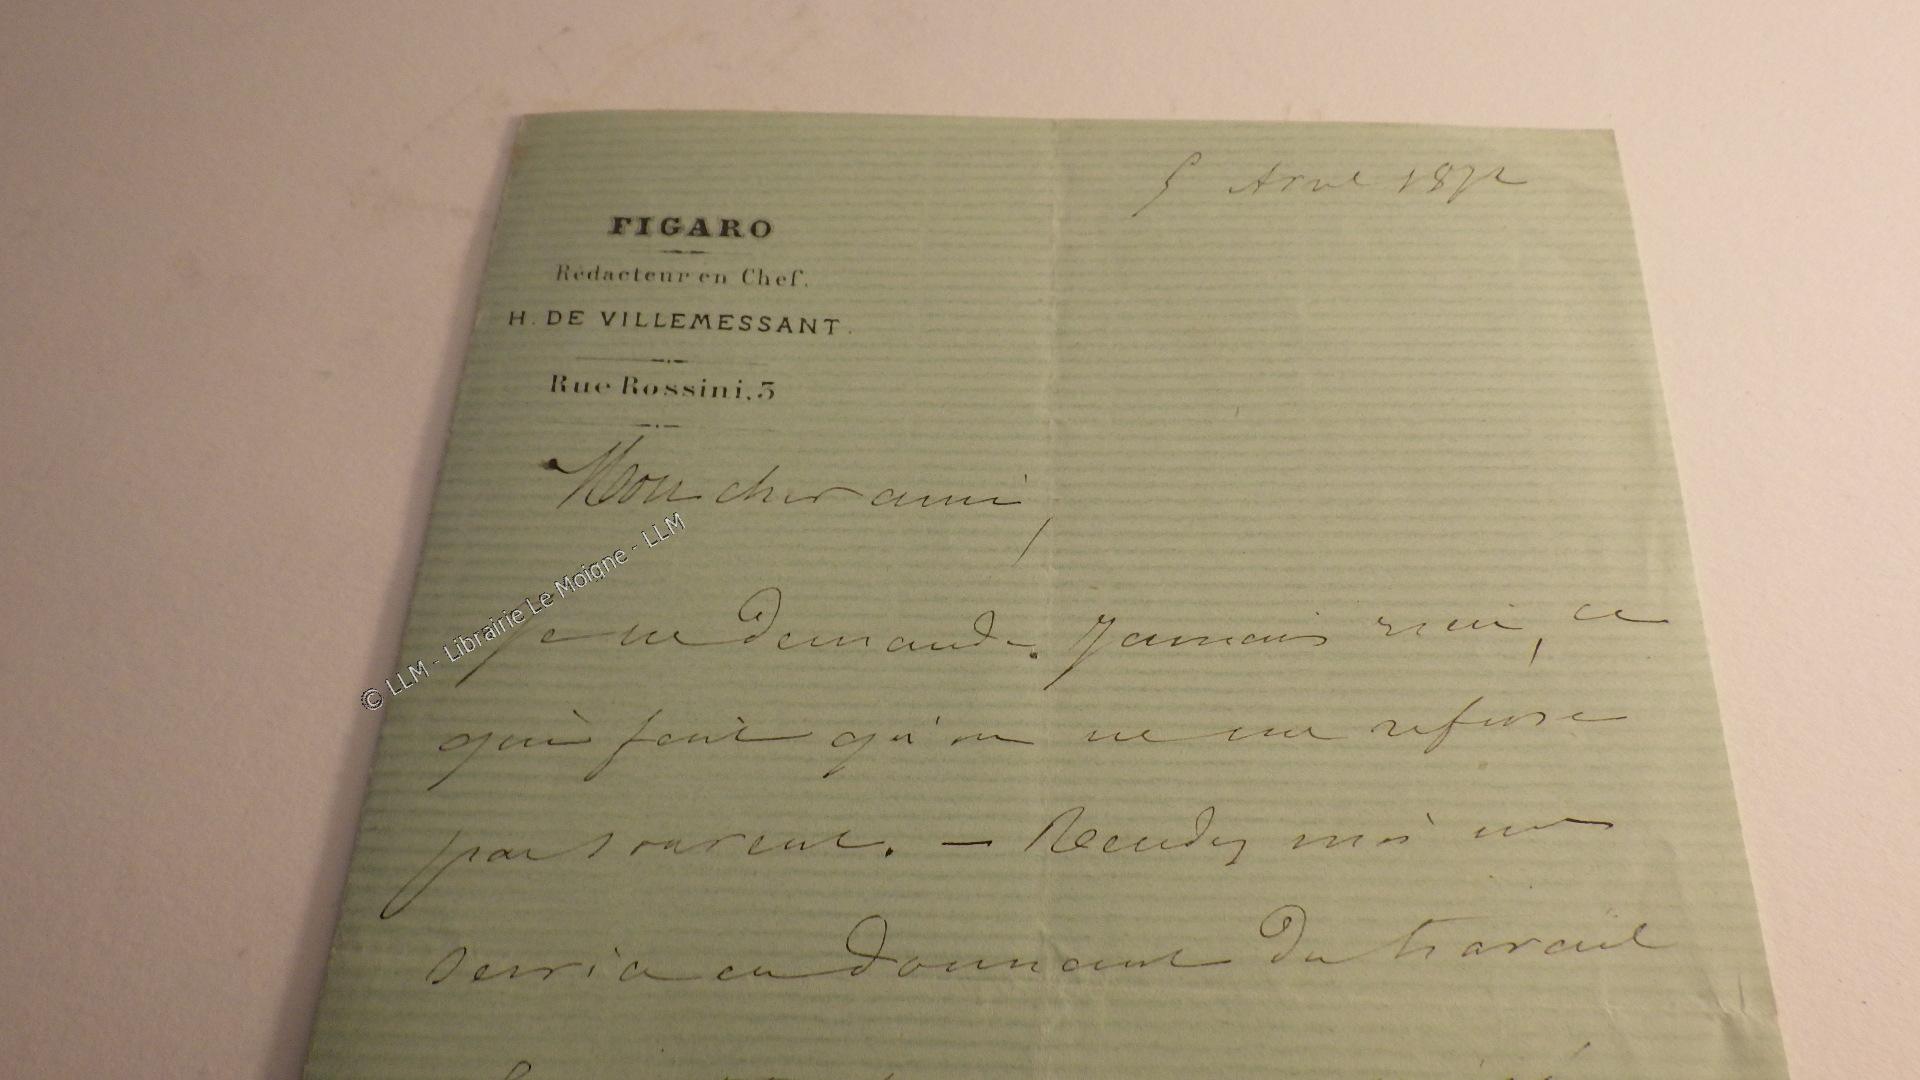 5 Avril 1872
FIGARO
Rédacteur en Chef.
H. DE VILLEMESSANT.
Rue Rossini, 3
Mon cher ami,
© LLM - Librairie Le Moigne - LLM
Je ne demande jamais rien, ce
qui fait qu'on ne me refuse
pas souvent. — Rendez moi un
service en donnant du travail